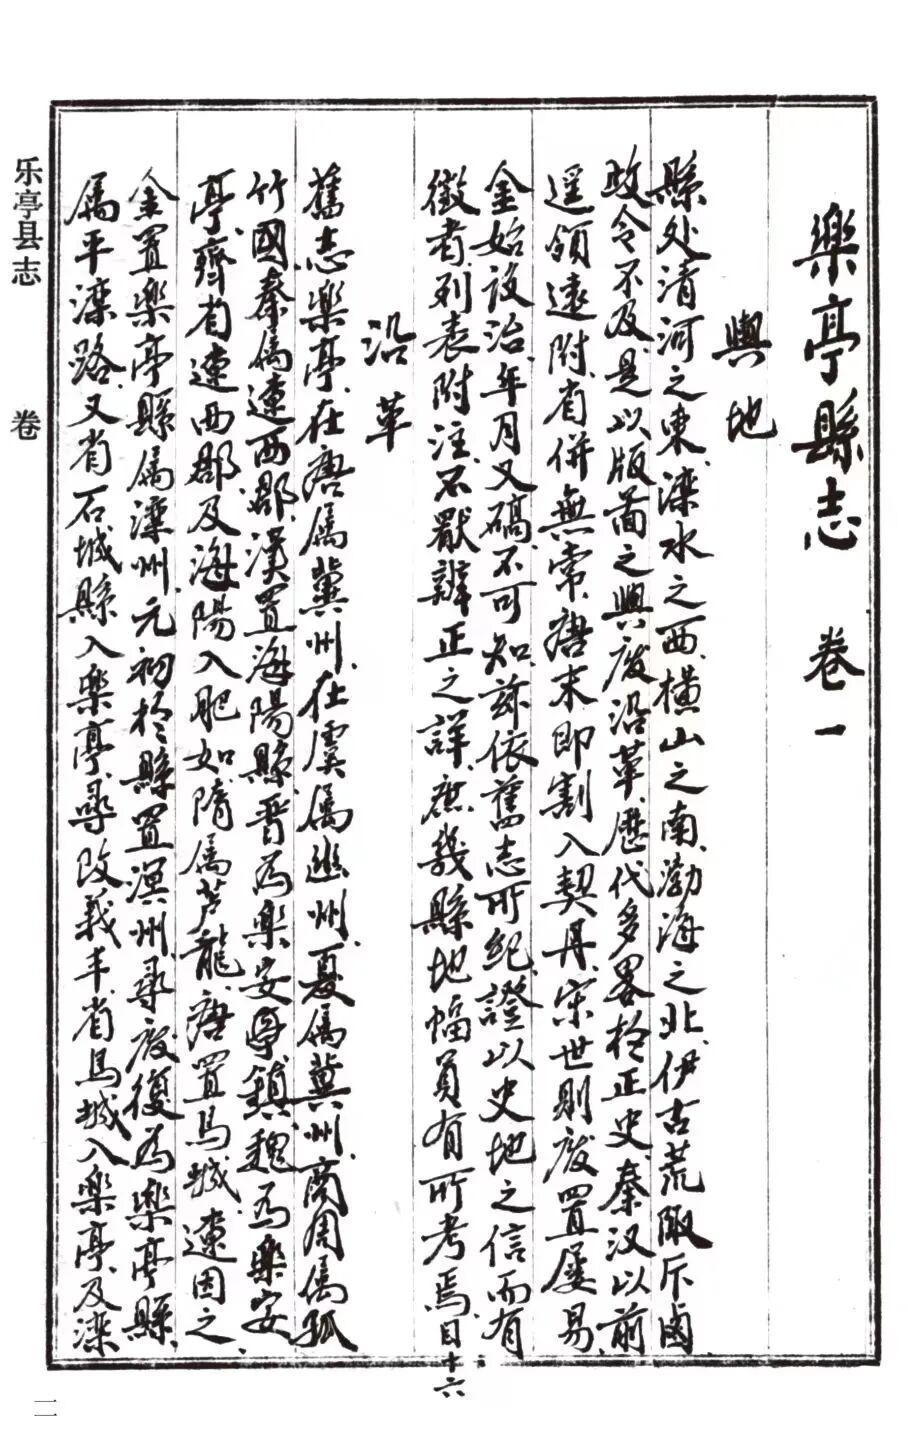 樂亭縣志 卷一
輿地
縣处清河之東、灤水之西、橫山之南、渤海之北、伊古荒陬斥鹵
政令不及是以版面之興廢沿革、歷代多畧於正史、秦汉以前
遥領遠附、省併無常、唐末即割入契丹、宋世則廢置屢易
金始設治、年月又碻不可知、茲依舊志所纪、證以史地之信而有
徵者、列表附注、不厭辨正之詳、庶幾縣地幅員有所考焉、目十六
沿革
舊志樂亭、在唐属冀州、在虞属幽州、夏属冀州、商周属孤
竹國、秦属遼西郡、漢置海陽縣、晋为樂安亭鎮、魏为樂安
亭、齊省遼西郡及海陽入肥如、隋属芦龍、唐置马城、遼因之
金置樂亭縣属灤州、元初於縣置溟州、尋废復为樂亭縣、
属平灤路、又省石城縣入樂亭、尋改義丰、省马城入樂亭、及灤
乐亭县志 卷一
一